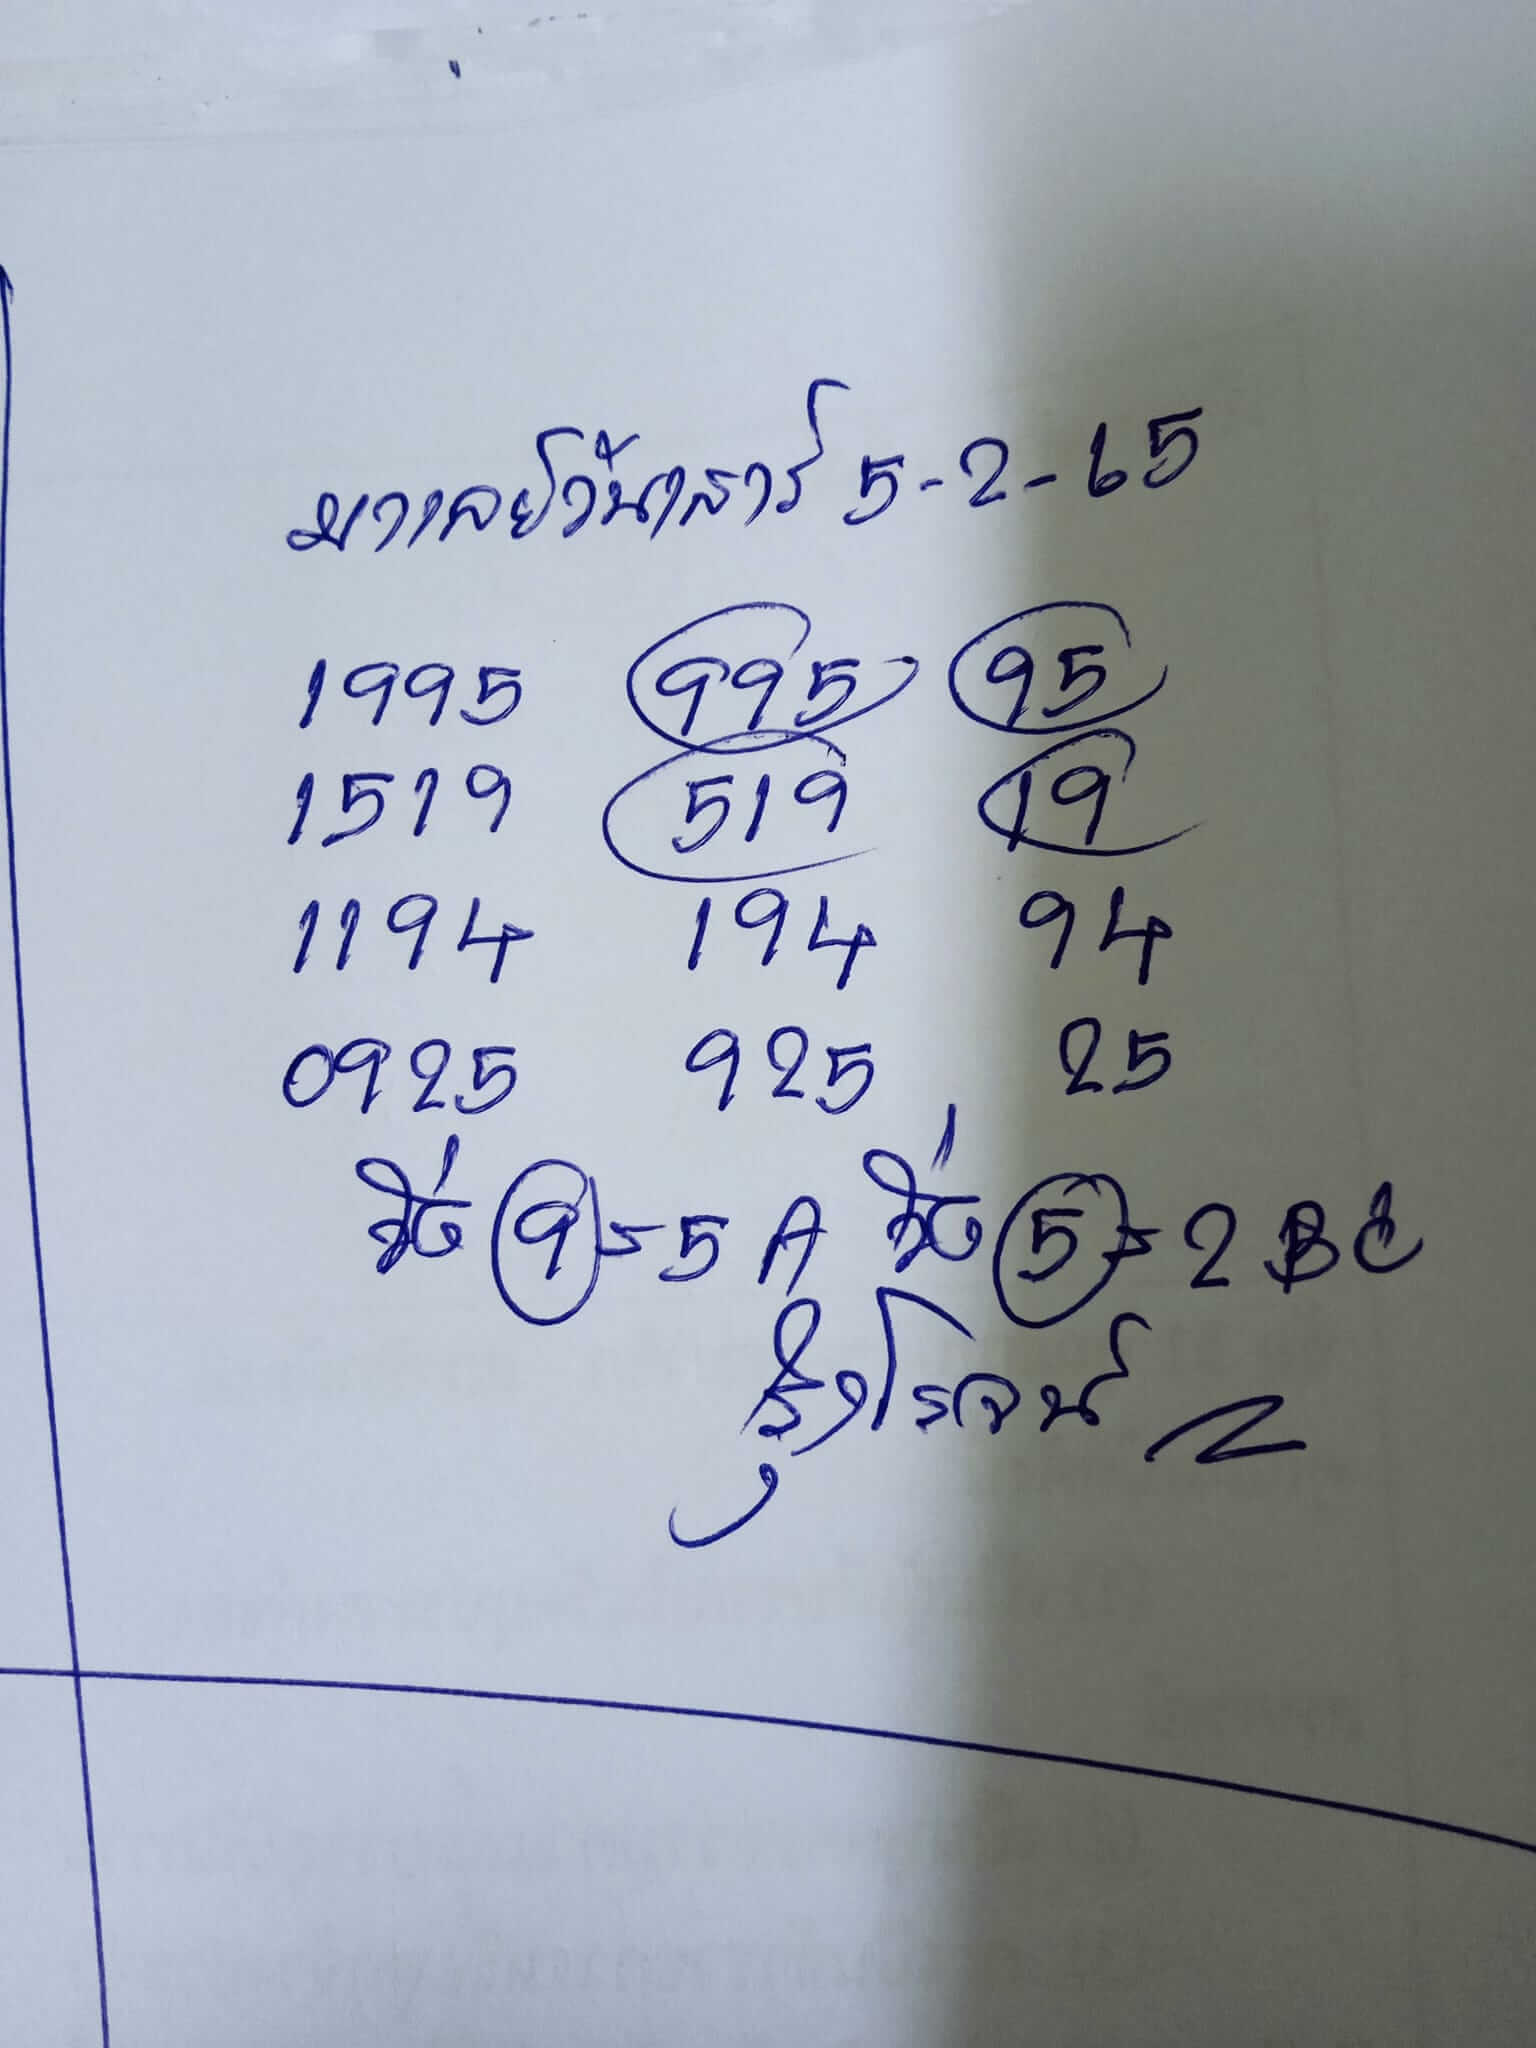 มาเลย์วันเสาร์ 5-2-65
1995 995 95
1519 519 19
1194 194 94
0925 925 25
วิ่ง 9-5 A วิ่ง 5-2 BC
รุ่งโรจน์